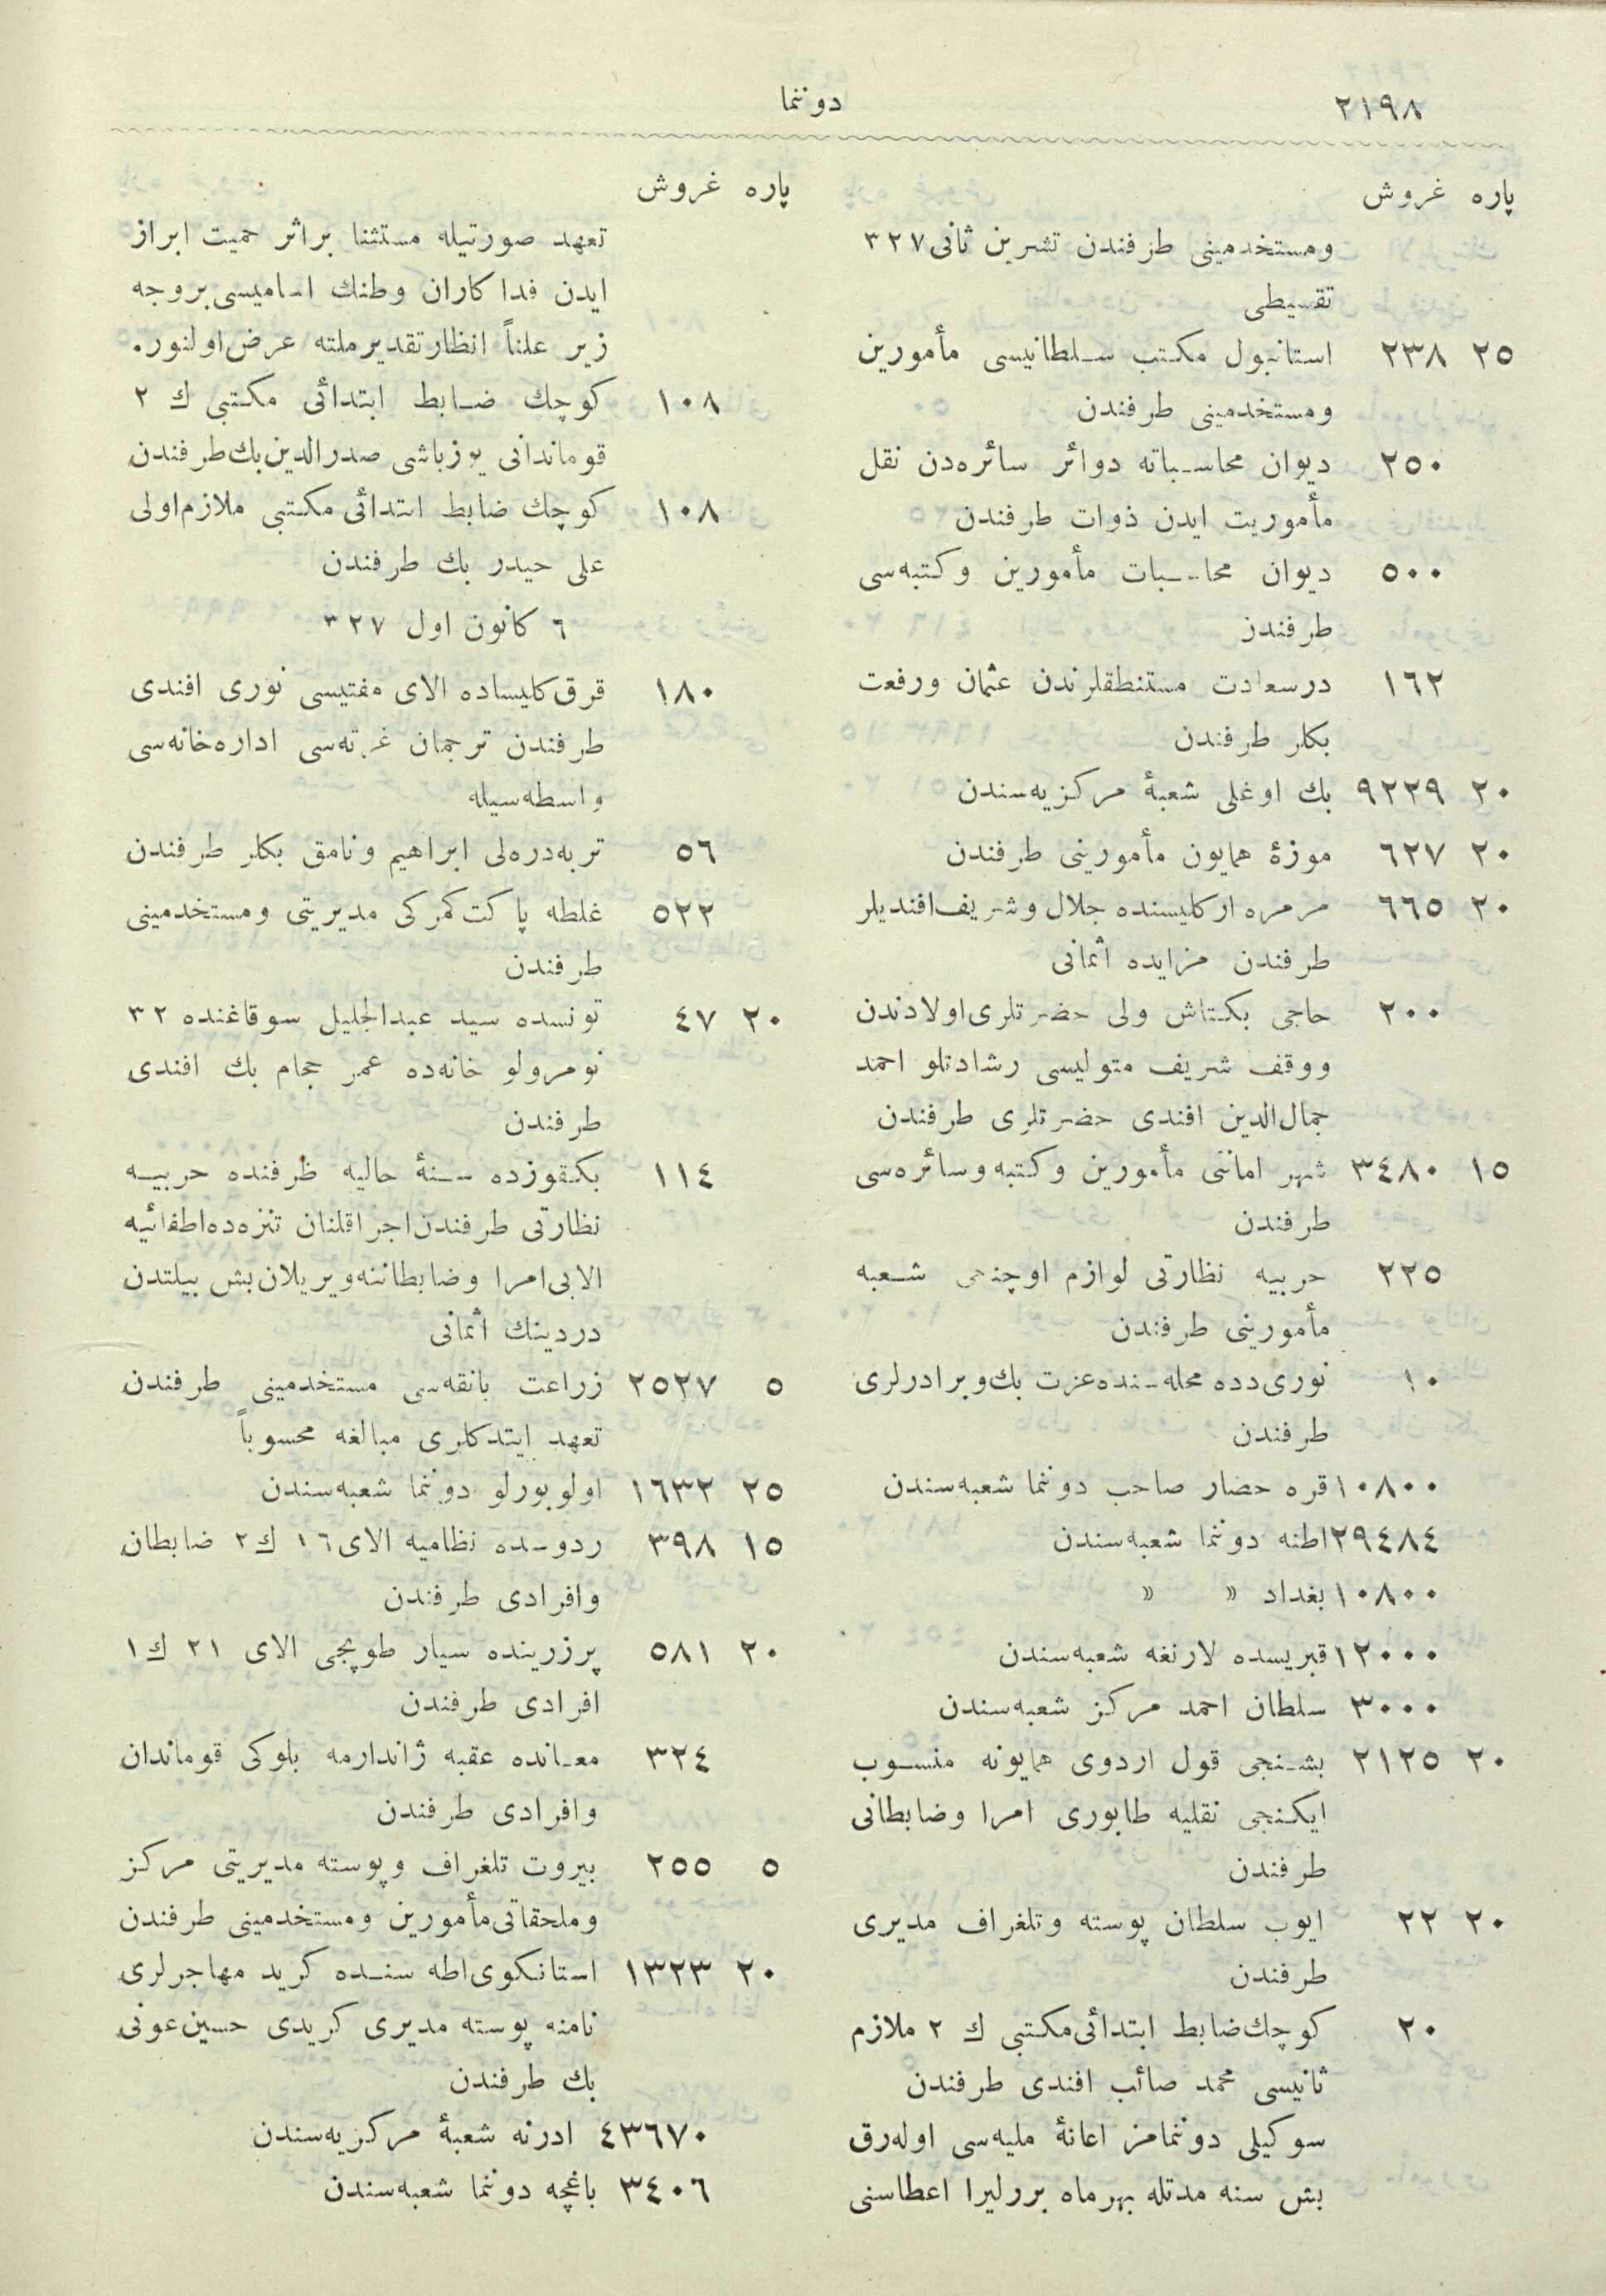 ٢١٩٨
دوننما
پاره غروش
ومستخدمينی طرفندن تشرين ثانی ٣٢٧
تقسيطی
٢٥ ٢٣٨ استانبول مكتب سلطانيسی مأمورين
ومستخدمينی طرفندن
٢٥٠ ديوان محاسباته دوائر سائره‌دن نقل
مأموريت ايدن ذوات طرفندن
٥٠٠ ديوان محاسبات مأمورين وكتبه‌سی
طرفندن
١٦٢ درسعادت مستنطقلرندن عثمان ورفعت
بكلر طرفندن
٢٠ ٩٢٢٩ بك اوغلی شعبهٔ مركزيه‌سندن
٢٠ ٦٢٧ موزهٔ همايون مأمورينی طرفندن
٢٠ ٦٦٥ مرمره اركليسنده جلال وشريف افنديلر
طرفندن مزايده اثمانی
٢٠٠ حاجی بكتاش ولی حضرتلری اولادندن
ووقف شريف متوليسی رشادتلو احمد
جمال‌الدين افندی حضرتلری طرفندن
١٥ ٣٤٨٠ شهر امانتی مأمورين وكتبه وسائره‌سی
طرفندن
٢٢٥ حربيه نظارتی لوازم اوچنجی شعبه
مأمورينی طرفندن
١٠ نوری‌دده محله‌سنده عزت بك وبرادرلری
طرفندن
١٠٨٠٠ قره حصار صاحب دوننما شعبه‌سندن
٢٩٤٨٤ اطنه دوننما شعبه‌سندن
١٠٨٠٠ بغداد » »
١٢٠٠٠ قبريسده لارنغه شعبه‌سندن
٣٠٠٠ سلطان احمد مركز شعبه‌سندن
٢٠ ٢١٢٥ بشنجی قول اردوی همايونه منسوب
ايكنجی نقليه طابوری امرا وضابطانی
طرفندن
٢٠ ٢٢ ايوب سلطان پوسته وتلغراف مديری
طرفندن
٢٠ كوچك ضابط ابتدائی مكتبی ك ٢ ملازم
ثانيسی محمد صائب افندی طرفندن
سوكيلی دوننمامز اعانهٔ مليه‌سی اوله‌رق
بش سنه مدتله بهرماه بررليرا اعطاسنی
پاره غروش
تعهد صورتيله مستثنا براثر حميت ابراز
ايدن فداكاران وطنك اساميسی بروجه
زير علناً انظار تقدير ملته عرض اولنور.
١٠٨ كوچك ضابط ابتدائی مكتبی ك ٢
قوماندانی يوزباشی صدرالدين بك طرفندن
١٠٨ كوچك ضابط ابتدائی مكتبی ملازم اولی
علی حيدر بك طرفندن
٦ كانون اول ٣٢٧
١٨٠ قرق كليساده الای مفتيسی نوری افندی
طرفندن ترجمان غزته‌سی اداره‌خانه‌سی
واسطه‌سيله
٥٦ تربه‌دره‌لی ابراهيم ونامق بكلر طرفندن
٥٢٢ غلطه پاكت كمركی مديريتی ومستخدمينی
طرفندن
٢٠ ٤٧ تونسده سيد عبدالجليل سوقاغنده ٣٢
نومرولو خانه‌ده عمر حجام بك افندی
طرفندن
١١٤ بكقوزده سنهٔ حاليه ظرفنده حربيه
نظارتی طرفندن اجرا قلنان تنزه‌ده اطفائيه
الايی امرا وضابطاننه ويريلان بش بيلتدن
دردينك اثمانی
٥ ٢٥٢٧ زراعت بانقه‌سی مستخدمينی طرفندن
تعهد ايتدكلری مبالغه محسوباً
٢٥ ١٦٣٢ اولوبورلو دوننما شعبه‌سندن
١٥ ٣٩٨ ردوسده نظاميه الای ١٦ ك ٢ ضابطان
وافرادی طرفندن
٢٠ ٥٨١ پرزرينده سيار طوپجی الای ٢١ ك ١
افرادی طرفندن
٣٢٤ معانده عقبه ژاندارمه بلوكی قوماندان
وافرادی طرفندن
٥ ٢٥٥ بيروت تلغراف وپوسته مديريتی مركز
وملحقاتی مأمورين ومستخدمينی طرفندن
٢٠ ١٣٢٣ استانكوی اطه سنده كريد مهاجرلری
نامنه پوسته مديری كريدی حسين عونی
بك طرفندن
٤٣٦٧٠ ادرنه شعبهٔ مركزيه‌سندن
٣٤٠٦ باغچه دوننما شعبه‌سندن